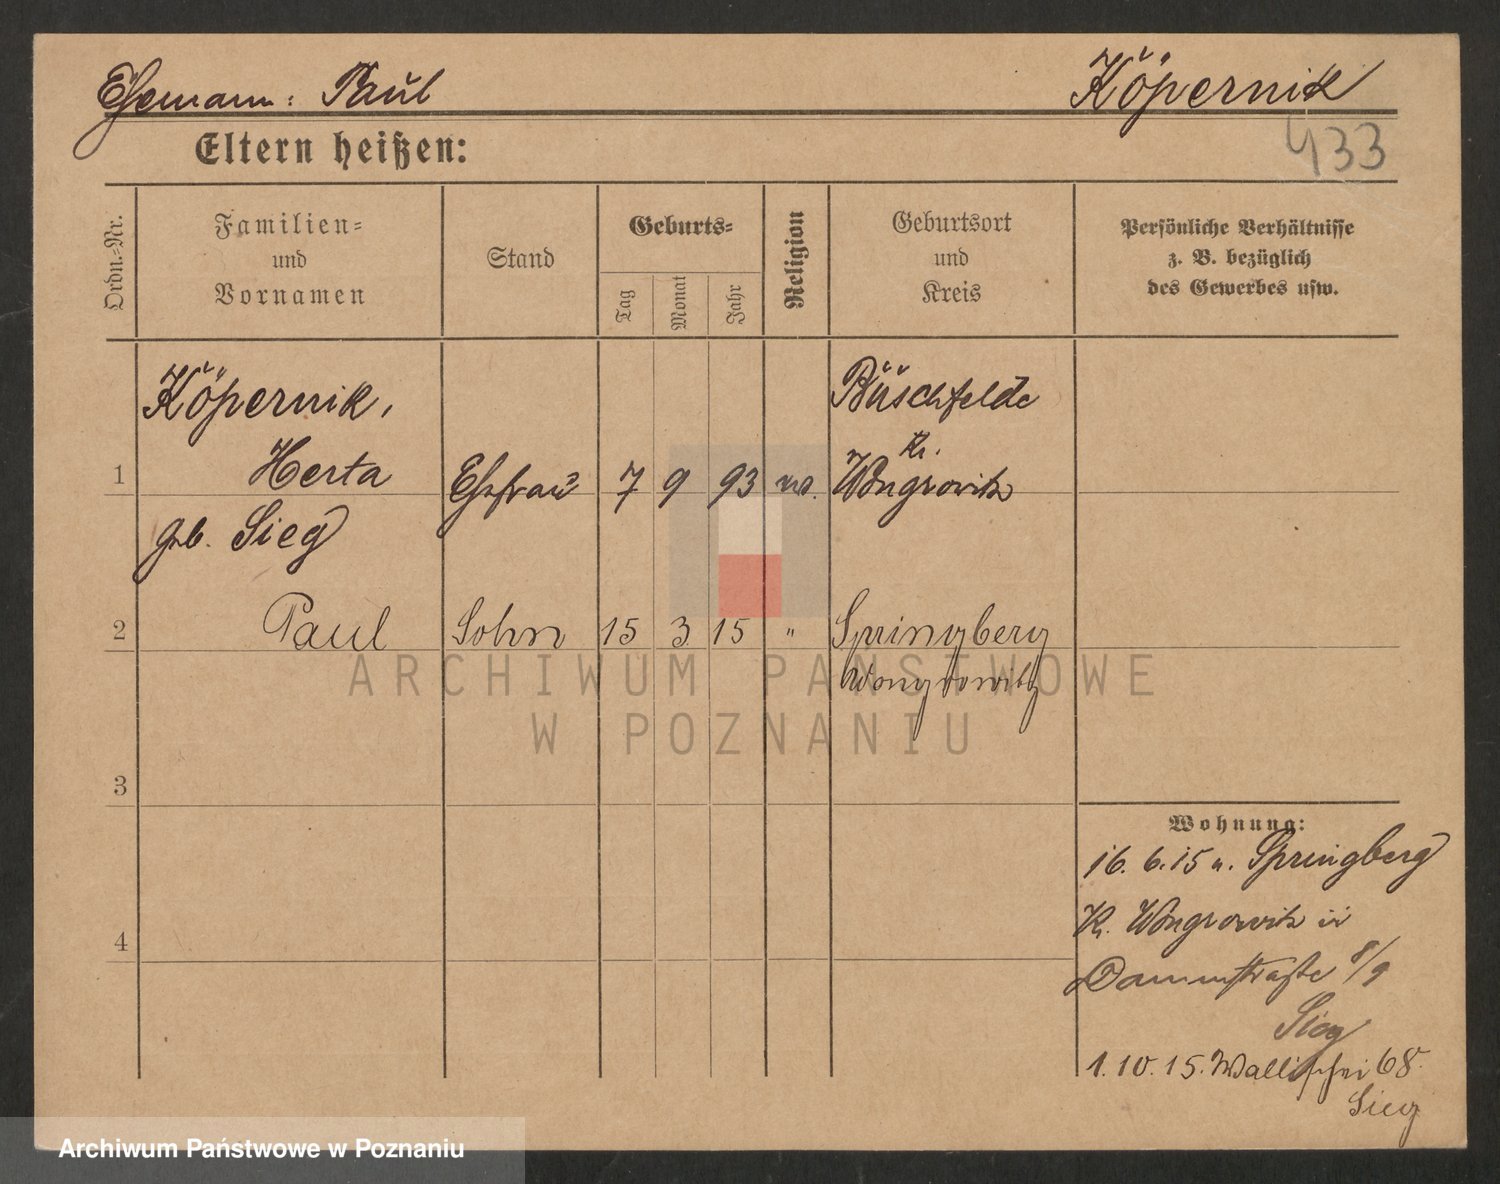 Ehemann: Paul Köpernik
433
Eltern heißen:
Ordn.-Nr.
Familien-
und
Vornamen
Stand
Geburts-
Tag
Monat
Jahr
Religion
Geburtsort
und
Kreis
Persönliche Verhältnisse
z. B. bezüglich
des Gewerbes usw.
Köpernik,
Büschfelde
Kr.
1 Herta Ehefrau 7 9 93 Wongrowitz
geb. Sieg
2 Paul Sohn 15 3 15 " Springberg
Wongrowitz
ARCHIWUM PAŃSTWOWE
W POZNANIU
3
Wohnung:
16. 6. 15 v. Springberg
4
Kr. Wongrowitz in
Dammstraße 8/9
Sieg
1. 10. 15. Wallischei 68
Sieg
Archiwum Państwowe w Poznaniu